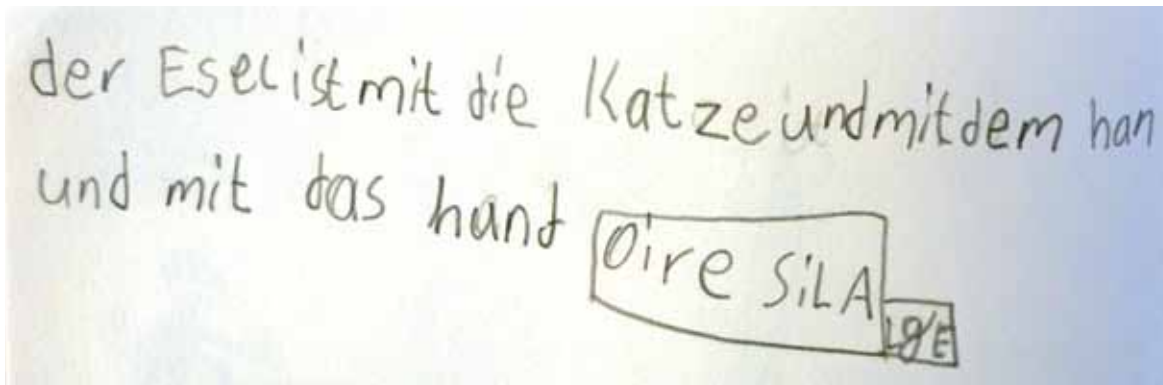 der Esel ist mit die Katze und mit dem han
und mit das hund
Oire SiLA